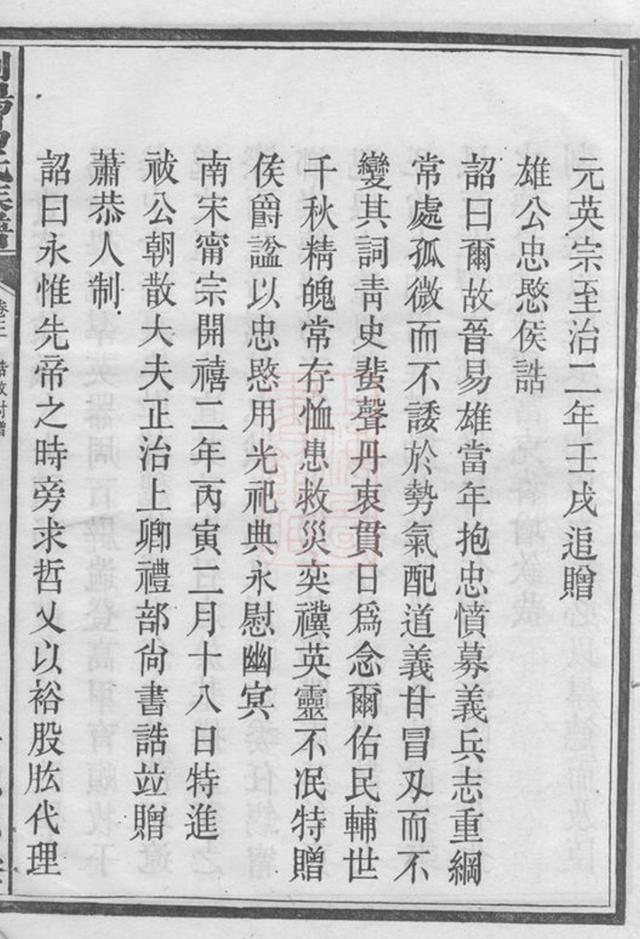 元英宗至治二年壬戌追贈
雄公忠愍侯誥
詔曰爾故晉易雄當年抱忠憤募義兵志重綱
常處孤微而不諉於勢氣配道義甘冒刄而不
變其詞青史蜚聲丹衷貫日爲念爾佑民輔世
千秋精魄常存恤患救災奕禩英靈不泯特贈
侯爵謚以忠愍用光祀典永慰幽冥
南宋甯宗開禧二年丙寅二月十八日特進
祓公朝散大夫正治上卿禮部尙書誥竝贈
蕭恭人制
詔曰永惟先帝之時旁求哲乂以裕股肱代理
卷之二 誥敕封贈